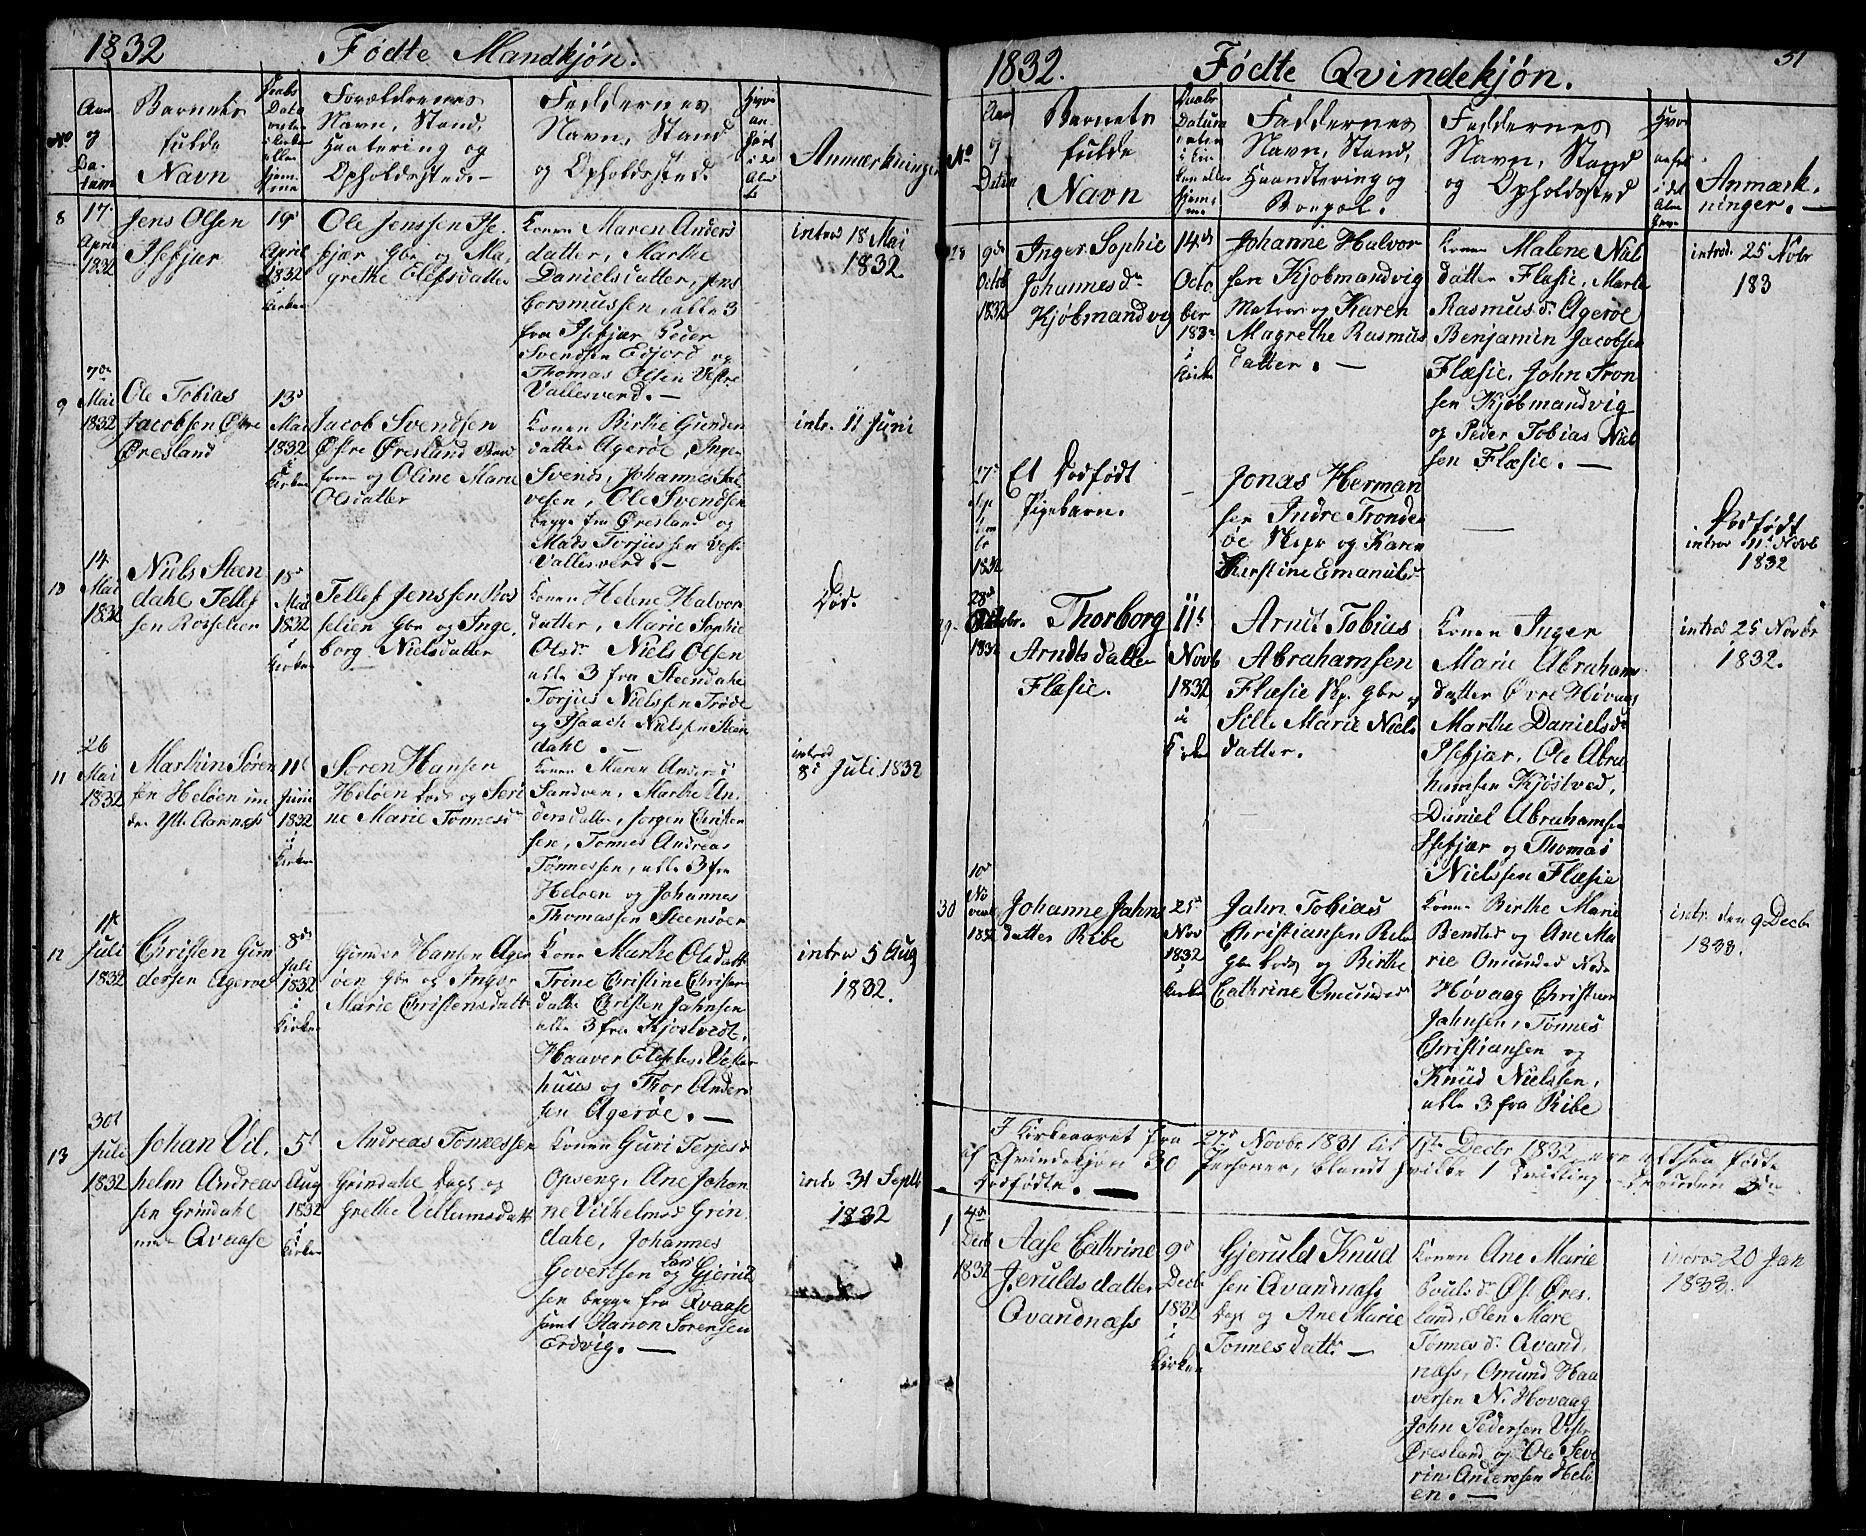 1832 Fødte Mandkjøn.
No
Aar
og
Da-
tum
Barnets
fulde
Navn
Daabs
Data
Forældrenes
Navn, Stand,
Haantering og
Opholdssted. -
Faddernes
Navn, Stand
og Opholdssted.
Hvor
an-
ført
i det
Alm.
Anmærkninger
8
17.
April
1832
Jens Olsen
Isefjær
19d
April
1832
i
Kirken
Ole Jenssen Ise-
fjær Gbr og Ma-
grethe Olefsdatter
Konen Maren Anders
datter, Marthe
Danielsdatter, Jens
Torsmussen, alle 3
fra Isefjær Peder
Svendsen Edjord og
Thomas Olsen Vestre
Vallesverd. -
introd 18 Mai
1832
9
7de
Mai
1832
Ole Tobias
Jacobsen Østre
Øresland
13d
Mai
1832
i
Kirken
Jacob Svendsen
Østre Øresland
og Oline Marie
Olsdatter
Konen Birthe Gunders
datter Agerøe, Inger
Svends, Johannes Sal-
vesen, Ole Svendsen
begge fra Øresland og
Mads Torjussen Vest
Vallesverd. -
intr. 11 Juni
10
14.
Mai
1832
Niels Steen
dahl Tellef-
sen Rosselien
18d
Mai
1832
i
Kirken
Tellef Jenssen Ros
selien Gbr og Inge-
borg Nielsdatter
Konen Helene Halvor
datter, Marie Sophie
Olsdr Niels Olsen
alle 3 fra Steendahl
Torjus Nielssen Trøde
og Isaach Nielssen Steen
dahl. -
Død.
11
26
Mai
1832
Marthin Søren
sen Heløen un
der Ytt. Aarnæss
11t
Juni
1832
i
Kirken
Søren Hansen
Heløen Lods og Seri
ne Marie Tønnesd
Konen Maren Anders
Sandven, Marthe An-
dersdatter, Jørgen Christen
sen, Tønnes Andreas
Tønnessen, alle 3 fra
Heløen og Johannes
Thomassen Steensøen
introd
8d Juli 1832
12
1te
Juli
1832
Christen Gun
dersen Agerøe
8de
Juli
1832
i
Kirken
Gunder Hansen Ager
øen Gbr og Inger
Marie Christensdatt
Kone Marthe Olsdatt
Trine Christine Christen
datter Christen Jahnsen
alle 3 fra Kjøstvedt,
Haaver Vester
huus og Thor Ander
sen Agerøe. -
introd 5 Aug
1832.
13
30t
Juli
1832
Johan Vil-
helm Andreas
sen Grimdahl
Qvaase
5t
Aug
1832
i
Kirken
Andreas Tønnessen
Grimdahl Dagl og
Grethe Villumsdatt
Konen Guri Terjesd
Opseng, Ane Johan
ne Vilhelmsd Grim
dahl, Johannes
Govertsen og Gjeruld
Lars
sen begge fra Qvaase
samt Aanon Sørensen
Erdvig. -
intr 31 Septb
1832
1832. Fødte Qvindekjøn. 51
No
Aar
og
Datum
Barnets
fulde
Navn
Daabs
Datum
Faddernes
Navn, Stand,
Haandtering og
Boepæl.
Faddernes
Navn, Stand
og Opholdssted
Hvor
anført
i det
Alm.
Anmærk-
ninger. -
28
9de
Octob
1832
Inger Sophie
Johannesdr
Kjøbmandvig
14de
Octo
ber
1832
i
Kirke
Johanne Halvor
sen Kjøbmandvig
Matros og Karen
Magrethe Rasmus
datter. -
Konen Malene Niels
datter Flæsie, Marte
Rasmusdr Agerøe
Benjamin Jacobsen
Flæsie, John Tron
sen Kjøbmandvig
og Peder Tobias Niel
sen Flæsie. -
introd. 25 Novbr
183
27d
Sep
tem
br
1832
Et Dødfødt
Pigebarn.
-
Jonas Herman
sen Indre Tronder
øe Skipr og Karen
Kirstine Emanuelsd
-
Dødfødt
introd 11d Novb
1832
29
28d
Octobr.
1832
Thorborg
Arndtsdatter
Flæsie.
11t
Novb
1832
i
Kirken
Arndt Tobias
Abrahamsen
Flæsie Skp. Gbr og
Sille Marie Niels
datter.
Konen Inger
Marie Abrahams
datter Øvre Høvaag
Marthe Danielsdr
Isefjær, Ole Abra
hamsen Kjøstved,
Daniel Abrahamsen
Isefjær og Thomas
Nielssen Flæsie
introd 25 Novbr
1832.
30
10d
No
vemb
1832
Johanne Jahns
datter Ribe
25d
Nov
1832
i
Kirken
Jahn Tobias
Christiansen Ribe
Gbr Lods og Birthe
Cathrine Omundsd
Konen Birthe Marie
Bendtsd og Ane Ma
rie Omundsd Nedre
Høvaag Christian
Jahnsen, Tønnes
Christiansen og
Knud Nielssen,
alle 3 fra Ribe
intr. den 9 Decbr
1833.
I Kirkeaaret fra 27de Novbr 1831 til 1ste Decbr 1832 ere altsaa fødte
af Qvindekjøn 30 Personer, blandt hvilke 1 Tvilling
Dødfødte. -
1
4de
Decb
1832
Aase Cathrine
Jeruldsdatter
Qvandnæss
9d
Decbr
1832
i
Kirken
Gjeruld Knud
sen Qvandnæss
Dagl og Ane Marie
Tønnesdattr -
Konen Ane Marie
Povelsdr Øst. Øres-
land, Elen Mare
Tønnesdr Qvand-
næss, Omund Haa
versen N. Høvaag
John Pedersen Vestr
Øresland og Ole Seve
rin Anderssen Helø
en. -
introd 20 Jan
1833.